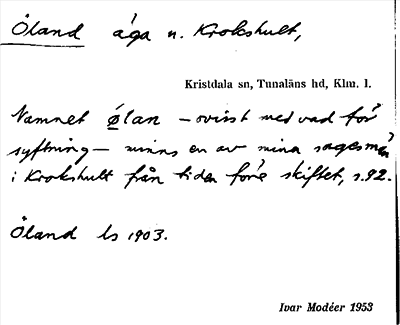 Öland äga n. Krokshult,
Kristdala sn, Tunaläns hd, Klm. l.
Namnet ølan – ovisst med vad för
syftning – minns en av mina sagesmän
i Krokshult från tiden före skiftet, s. 92.
Öland ls 1903.
Ivar Modéer 1953